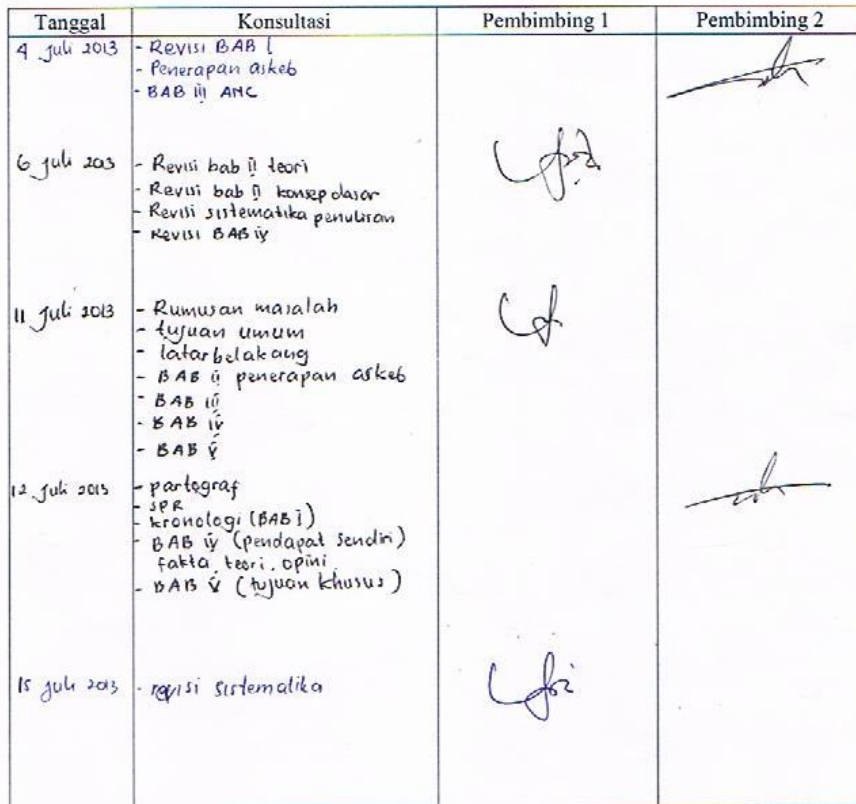 Tanggal Konsultasi Pembimbing 1 Pembimbing 2
4 Juli 2013 - Revisi BAB I
- Penerapan askeb
- BAB III ANC
6 Juli 2013 - Revisi bab II teori
- Revisi bab II konsep dasar
- Revisi sistematika penulisan
- Revisi BAB IV
11 Juli 2013 - Rumusan masalah
- tujuan umum
- latar belakang
- BAB II penerapan askeb
- BAB III
- BAB IV
- BAB V
12 Juli 2013 - partograf
- SPR
- kronologi (BAB I)
- BAB IV (pendapat sendiri)
fakta, teori, opini
- BAB V (tujuan khusus)
15 Juli 2013 - revisi sistematika